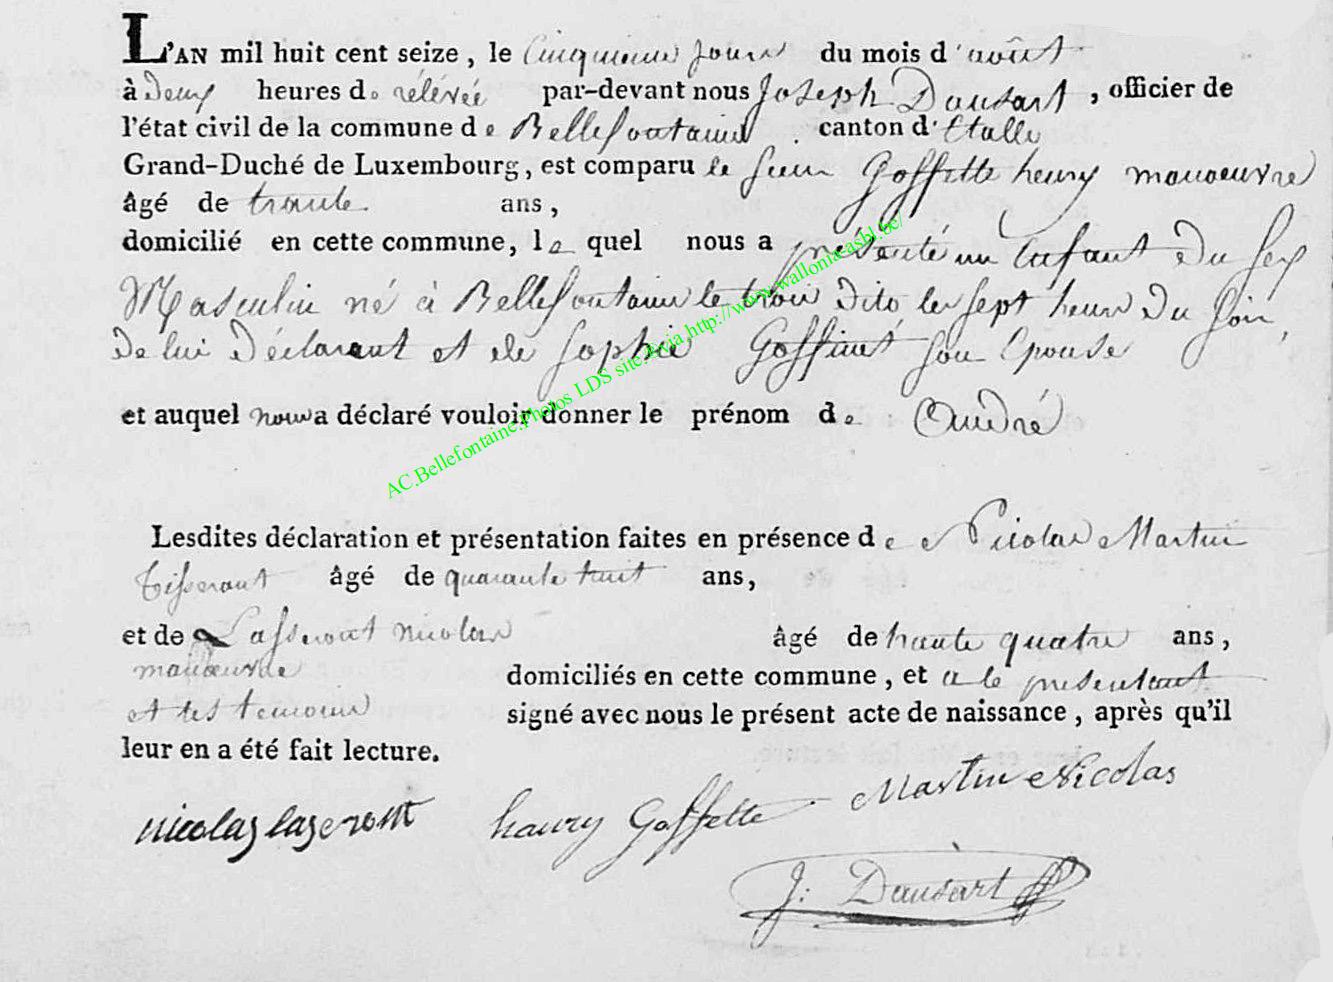 L'AN mil huit cent seize, le Cinquieme jours du mois d'août
à deux heures de rélévée par-devant nous Joseph Dausart, officier de
l'état civil de la commune de Bellefontaine canton d'Etalle
Grand-Duché de Luxembourg, est comparu le sieur Goffette henry manoeuvre
âgé de trante ans,
domicilié en cette commune, le quel nous a présenté un Enfant du sex
Masculin né à Bellefontaine le trois dito les sept heurs du soir,
de lui déclarant et de sophie Goffinet son Epouse
et auquel nous a déclaré vouloir donner le prénom de André
Lesdites déclaration et présentation faites en présence de Nicolas Martin
tisserant âgé de quarante huit ans,
et de Lasserout nicolas âgé de trante quatre ans,
manoeuvre domiciliés en cette commune, et a le presentant
et les temoins signé avec nous le présent acte de naissance, après qu'il
leur en a été fait lecture.
nicolas lazeront haury Goffette Martin Nicolas
J: Dausart
AC.Bellefontaine.Photos LDS site.&via.http://www.wallonia-asbl.be/